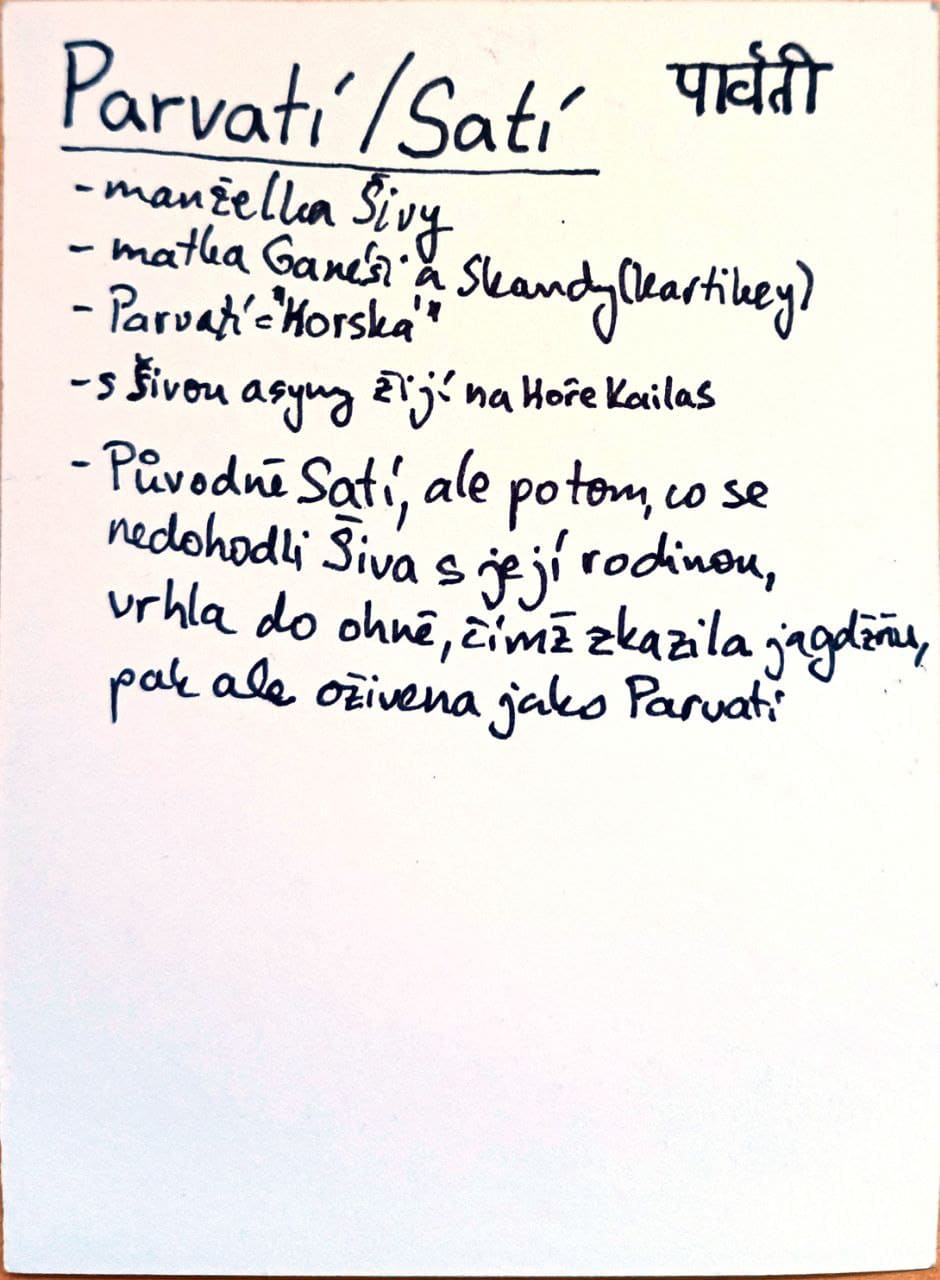 Parvatí/Satí पार्वती
- manželka Šivy
- matka Ganéši a Skandy (Kartikey)
- Parvatí = "Horská"
- s Šivou a syny žijí na Hoře Kailas
- Původně Satí, ale potom, co se
nedohodli Šiva s její rodinou,
vrhla do ohně, čímž zkazila jagdžňu,
pak ale oživena jako Parvatí